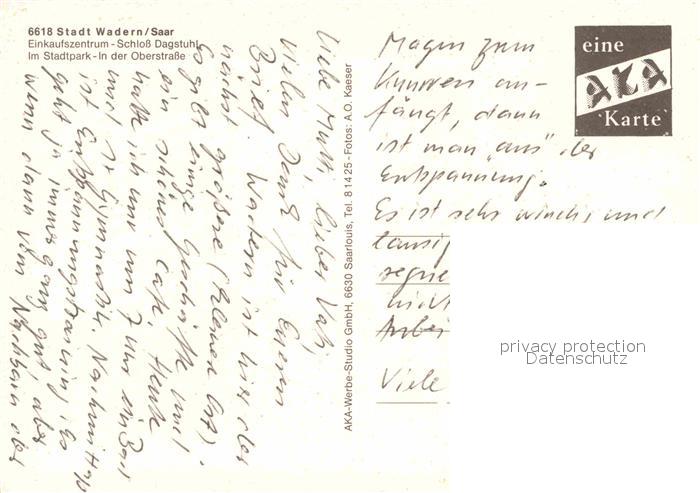 6618 Stadt Wadern/Saar
Einkaufszentrum - Schloß Dagstuhl
Im Stadtpark - In der Oberstraße
eine
AKA
Karte
AKA-Werbe-Studio GmbH, 6630 Saarlouis, Tel. 8 14 25 - Fotos: A.O. Kaeser
Liebe Mutti, lieber Vati,
vielen Dank für Euren
Brief. Wadern ist hier der
nächst größere (kleiner Ort).
Es gibt einige Geschäfte und
ein schönes Café. Heute
hatte ich um 7 Uhr ein Bad
und Gymnastik. Nachmittag
ist Entspannungstraining. Es
geht ja immer ganz gut, aber
wenn dann vom Nachbarn der
Magen zum
Knurren an-
fängt, dann
ist man "aus" der
Entspannung.
Es ist sehr windig und
Viele
privacy protection
Datenschutz